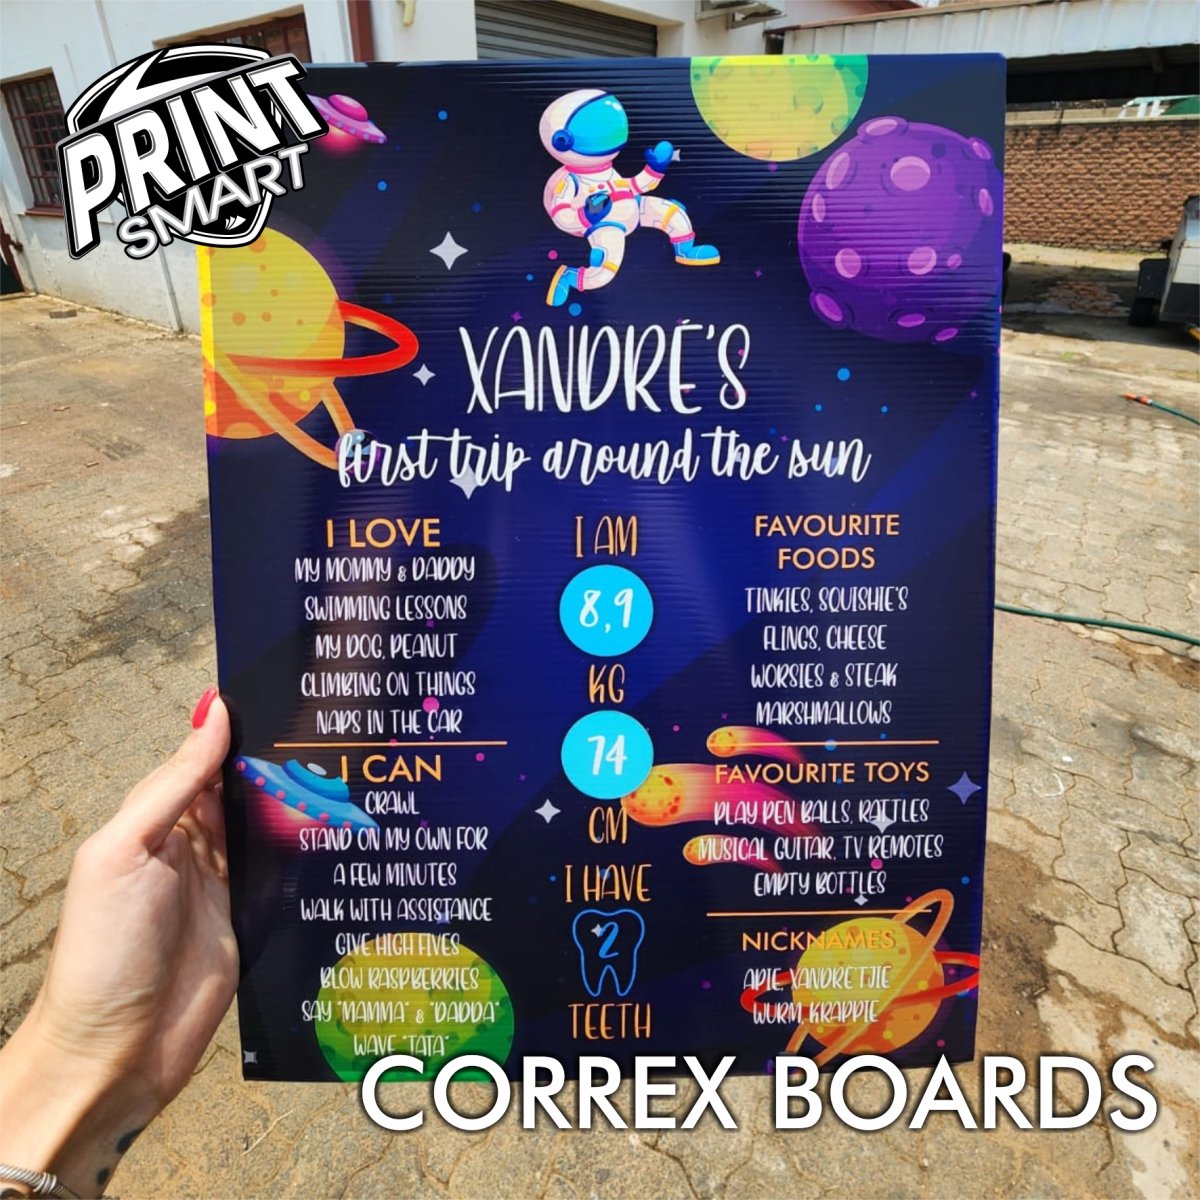 PRINT
SMART
XANDRÉ'S
first trip around the sun
I LOVE
MY MOMMY & DADDY
SWIMMING LESSONS
MY DOG, PEANUT
CLIMBING ON THINGS
NAPS IN THE CAR
I CAN
CRAWL
STAND ON MY OWN FOR
A FEW MINUTES
WALK WITH ASSISTANCE
GIVE HIGH FIVES
BLOW RASPBERRIES
SAY "MAMMA" & "DADDA"
WAVE "TATA"
I AM
8,9
KG
74
CM
I HAVE
2
TEETH
FAVOURITE
FOODS
TINKIES, SQUISHIE'S
FLINGS, CHEESE
WORSIES & STEAK
MARSHMALLOWS
FAVOURITE TOYS
PLAY PEN BALLS, RATTLES
MUSICAL GUITAR, TV REMOTES
EMPTY BOTTLES
NICKNAMES
APIE, XANDRE'TJIE
WURM, KRAPPIE
CORREX BOARDS